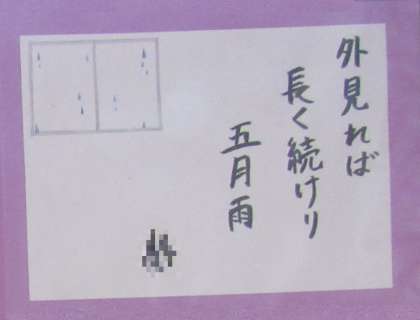 外見れば
長く続けり
五月雨